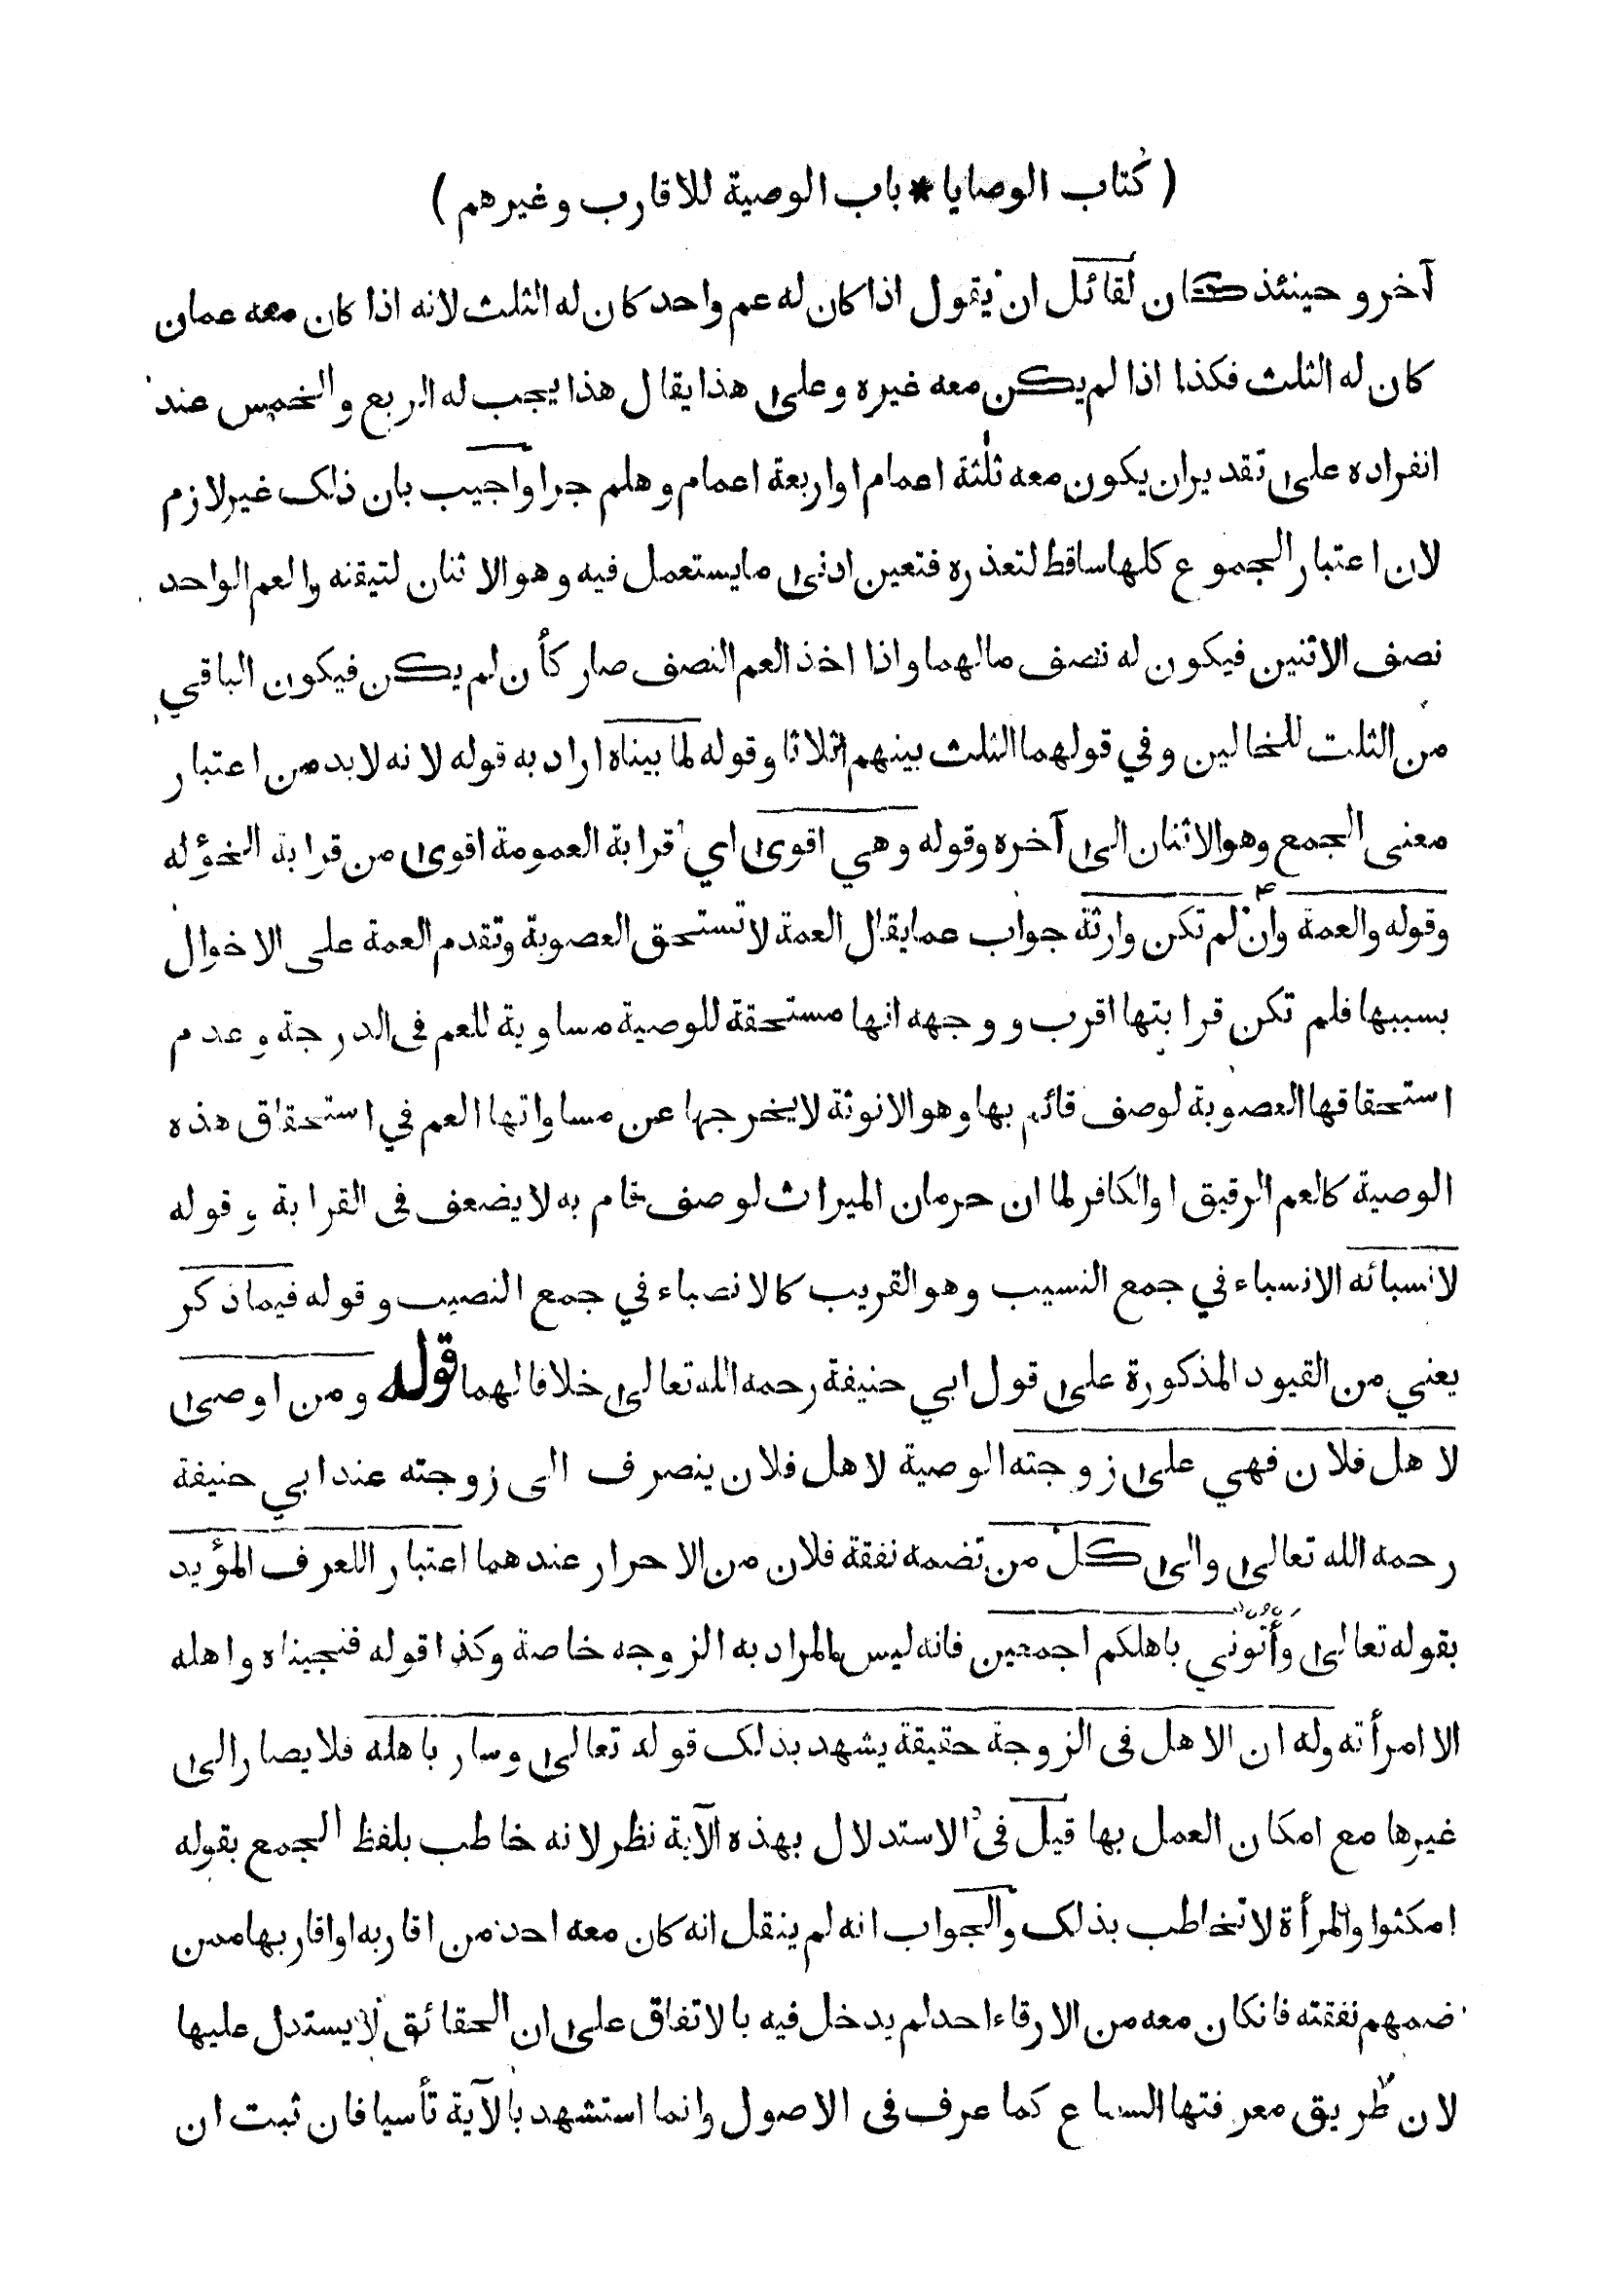 ( كتاب الوصايا * باب الوصية للاقارب وغيرهم )
آخر وحينئذ كان لقائل ان يقول اذا كان له عم واحد كان له الثلث لانه اذا كان معه عمان
كان له الثلث فكذا اذا لم يكن معه غيره وعلى هذا يقال هذا يجب له الربع والخمس عند
انفراده على تقدير ان يكون معه ثلثة اعمام او اربعة اعمام وهلم جرا واجيب بان ذلك غير لازم
لان اعتبار الجموع كلها ساقط لتعذره فتعين ادنى ما يستعمل فيه وهو الاثنان لتيقنه والعم الواحد
نصف الاثنين فيكون له نصف مالهما واذا اخذ العم النصف صار كأن لم يكن فيكون الباقي
من الثلث للخالين وفي قولهما الثلث بينهم اثلاثا وقوله لما بيناه اراد به قوله لانه لابد من اعتبار
معنى الجمع وهو الاثنان الى آخره وقوله وهي اقوى اي قرابة العمومة اقوى من قرابة الخؤله
وقوله والعمة وان لم تكن وارثة جواب عما يقال العمة لا تستحق العصوبة وتقدم العمة على الاخوال
بسببها فلم تكن قرابتها اقرب ووجهه انها مستحقة للوصية مساوية للعم فى الدرجة وعدم
استحقاقها العصوبة لوصف قائم بها وهو الانوثة لا يخرجها عن مساواتها العم في استحقاق هذه
الوصية كالعم الرقيق او الكافر لما ان حرمان الميراث لوصف قام به لا يضعف فى القرابة وقوله
لانسبائه الانسباء في جمع النسيب وهو القريب كالانصباء في جمع النصيب وقوله فيما ذكر
يعني من القيود المذكورة على قول ابي حنيفة رحمه الله تعالى خلافا لهما قوله ومن اوصى
لاهل فلان فهي على زوجته الوصية لاهل فلان ينصرف الى زوجته عند ابي حنيفة
رحمه الله تعالى والى كل من تضمه نفقة فلان من الاحرار عندهما اعتبار اللعرف المؤيد
بقوله تعالى وَأْتُوني باهلكم اجمعين فانه ليس المراد به الزوجه خاصة وكذا قوله فنجيناه واهله
الا امرأته وله ان الاهل فى الزوجة حقيقة يشهد بذلك قوله تعالى وسار باهله فلا يصار الى
غيرها مع امكان العمل بها قيل فى الاستدلال بهذه الآية نظر لانه خاطب بلفظ الجمع بقوله
امكثوا والمرأة لا تخاطب بذلك والجواب انه لم ينقل انه كان معه احد من اقاربه او اقاربها ممن
ضمهم نفقته فانكان معه من الارقاء احد لم يدخل فيه بالاتفاق على ان الحقائق لا يستدل عليها
لان طريق معرفتها السماع كما عرف فى الاصول وانما استشهد بالآية تأسيا فان ثبت ان